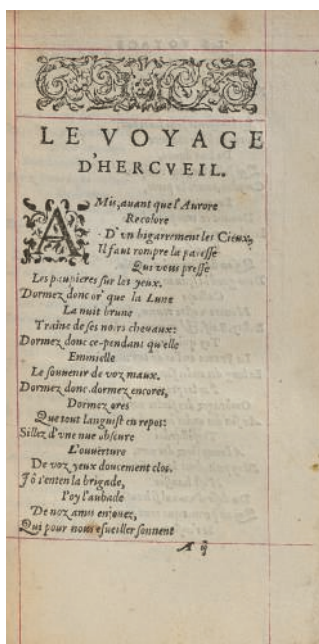 LE VOYAGE
D'HERCVEIL.
AMis, auant que l'Aurore
Recolore
D'vn bigarrement les Cieux,
Il faut rompre la paresse
Qui vous presse
Les paupieres sur les yeux.
Dormez donc or' que la Lune
La nuit brune
Traîne de ses noirs cheuaux:
Dormez donc ce-pendant qu'elle
Emmielle
Le souuenir de voz maux.
Dormez donc, dormez encores,
Dormez ores
Que tout languist en repos:
Sillez d'vne nue obscure
L'ouuerture
De voz yeux doucement clos.
Iô i'enten la brigade,
I'oy l'aubade
De noz amis enjouez,
Qui pour nous esueiller sonnent
A ij